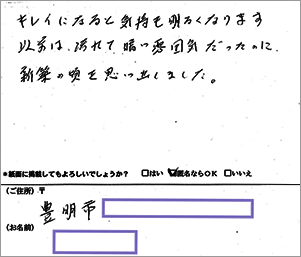 キレイになると気持も明るくなります
以前は、汚れて暗い雰囲気だったのに、
新築の頃を思い出しました。
*紙面に掲載してもよろしいでしょうか? □はい ☑匿名ならOK □いいえ
(ご住所) 〒
豊明市
(お名前)